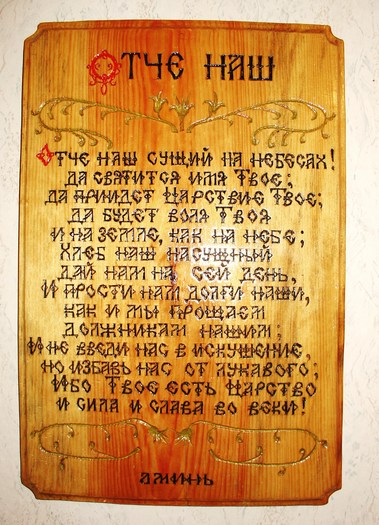 Отче наш
Отче наш сущий на небесах!
Да святится имя Твое;
Да приидет Царствие Твое;
Да будет воля Твоя
и на земле, как на небе;
Хлеб наш насущный
дай нам на сей день,
И прости нам долги наши,
как и мы прощаем
должникам нашим;
И не введи нас в искушение,
но избавь нас от лукавого;
Ибо Твое есть Царство
и сила и слава во веки!
аминь